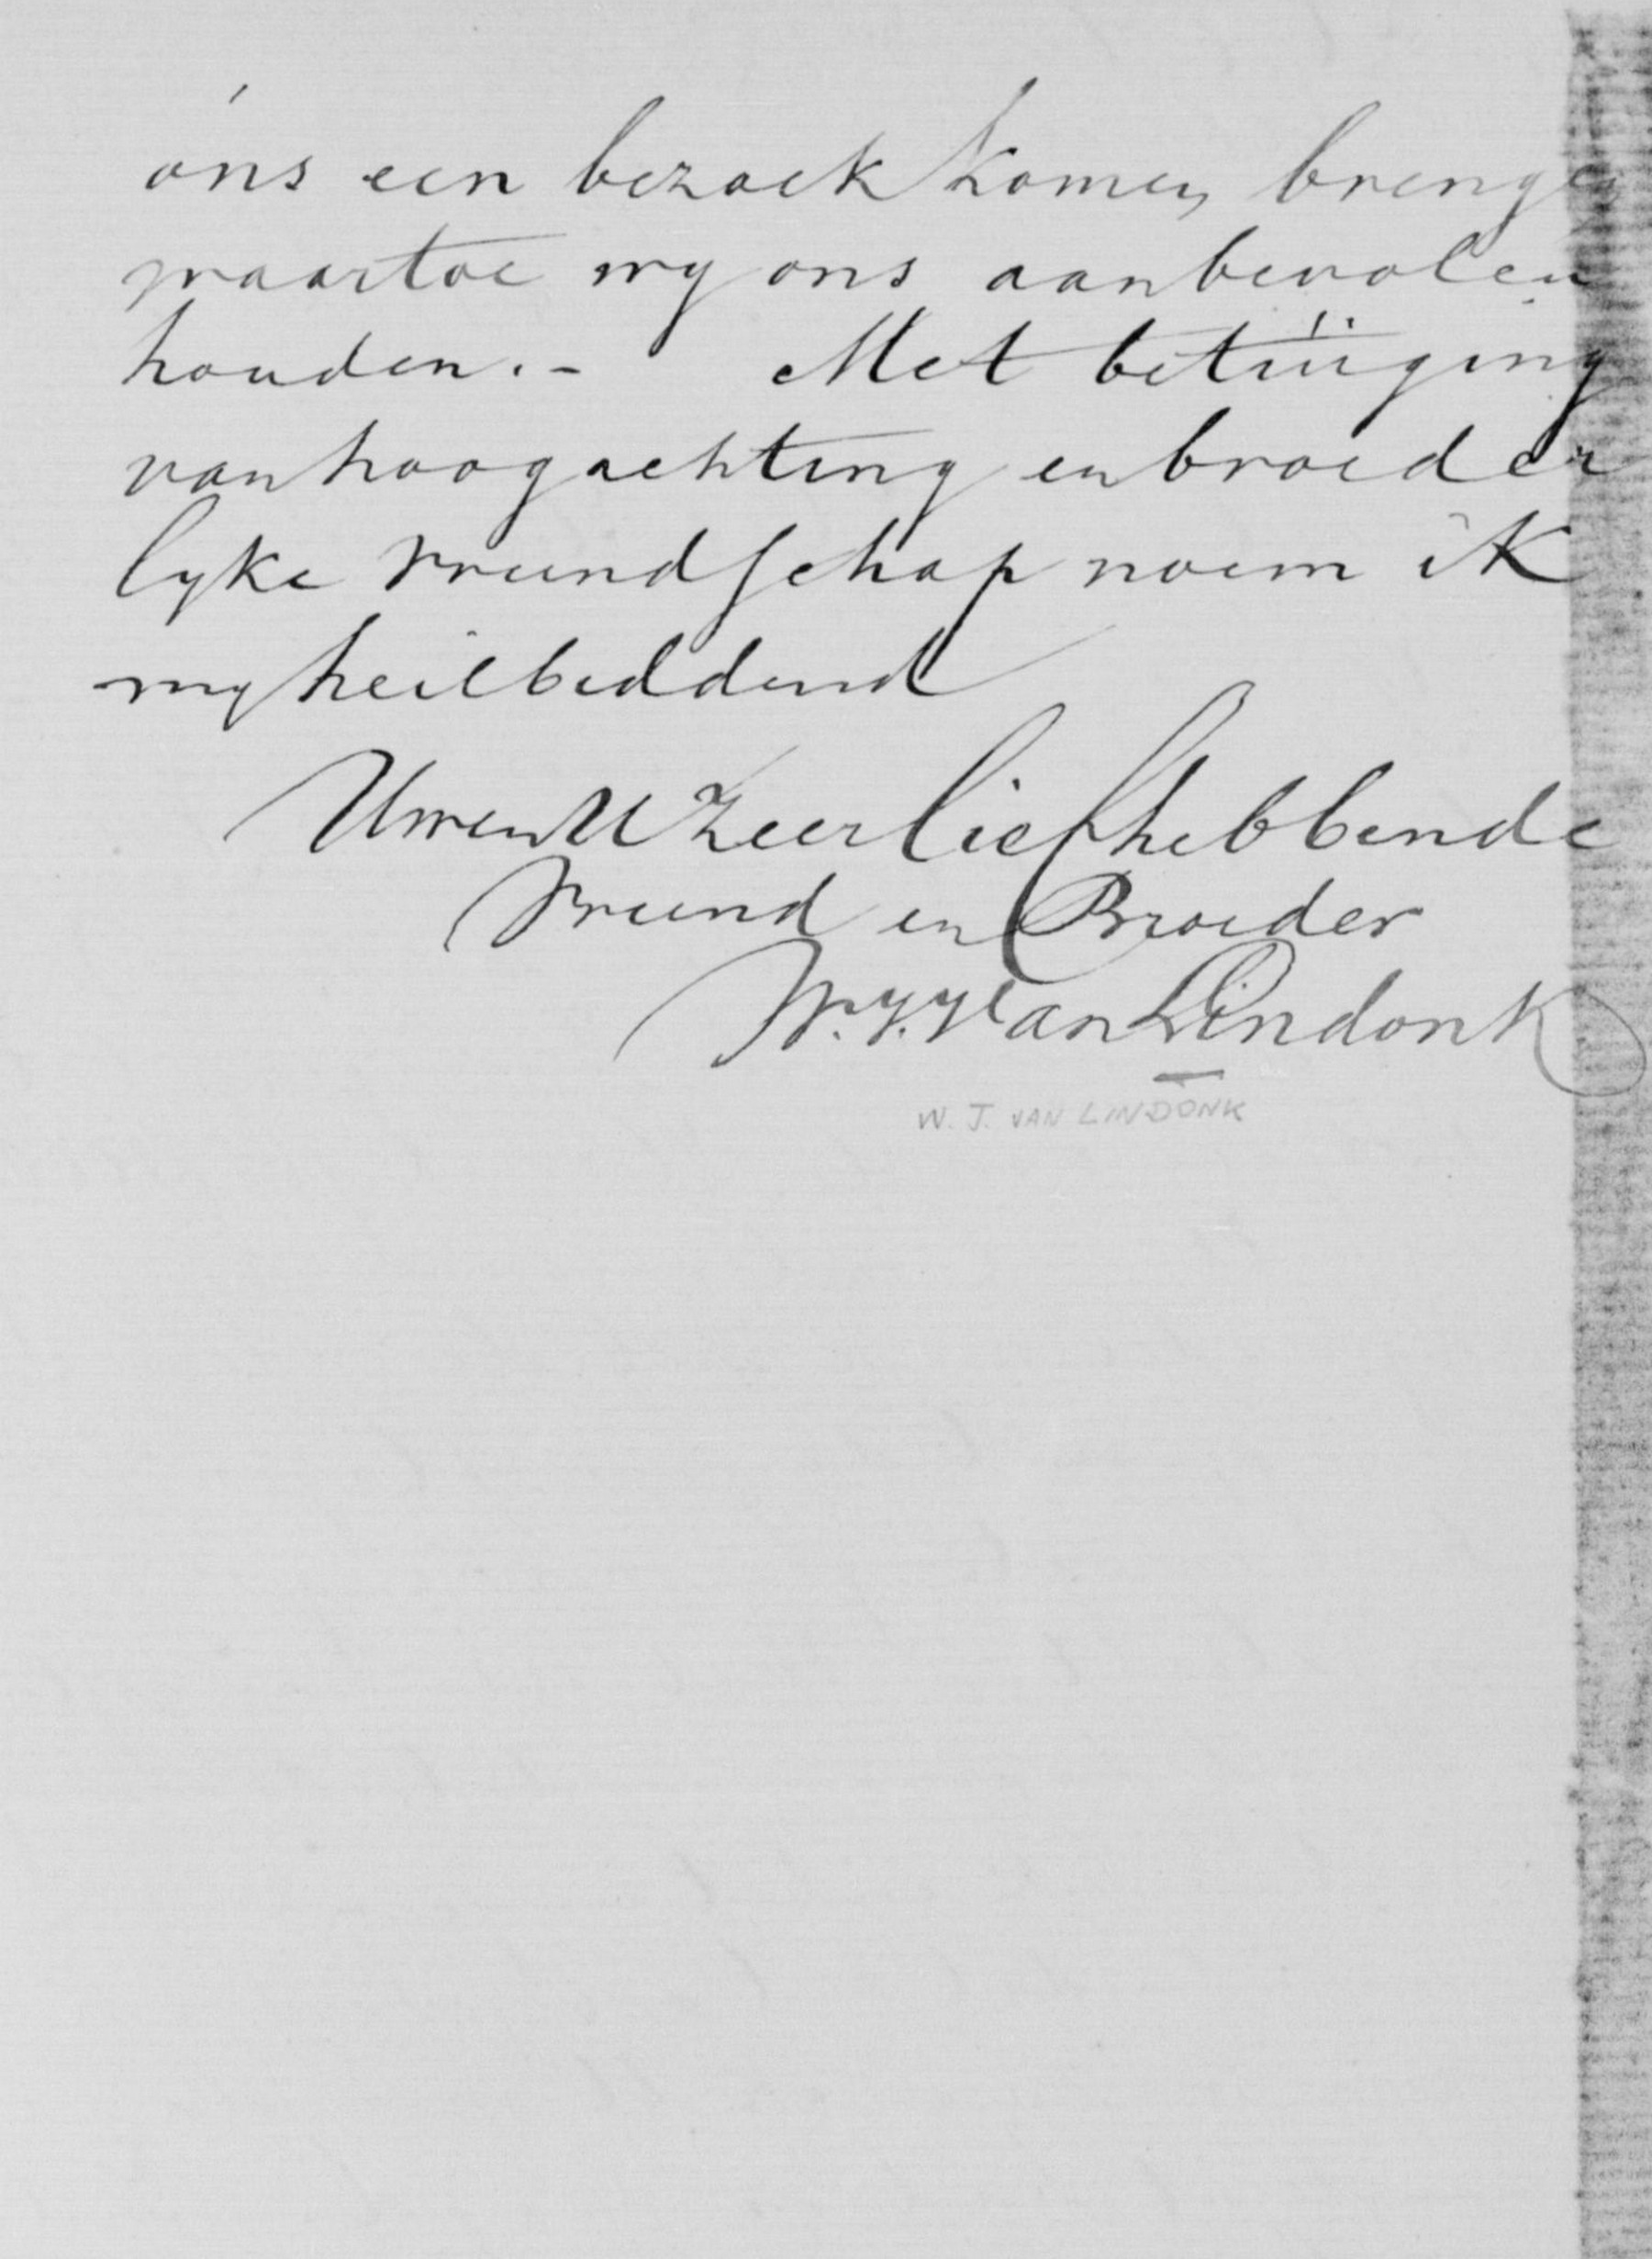 ons een bezoek komen brengen
waartoe wy ons aanbevolen
houden. - Met betuiging
van hoogachting en broeder
lyke vriendschap noem ik
my heilbiddend
Uwen U Zeer liefhebbende
Vriend en Broeder
W. J. Van Lindonk
W. J. VAN LINDONK